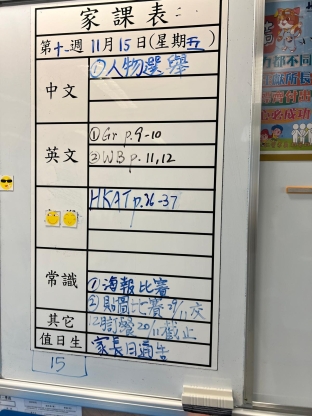 家課表
第十一週 11月15日(星期五)
中文 ①人物選舉
英文 ①Gr p.9-10
②WB p.11,12
HKAT p.26-37
常識 ①海報比賽
②貼圖比賽 29/11交
其它 訂餐 20/11截止
值日生 家長日通告
15
力都不同
必成功